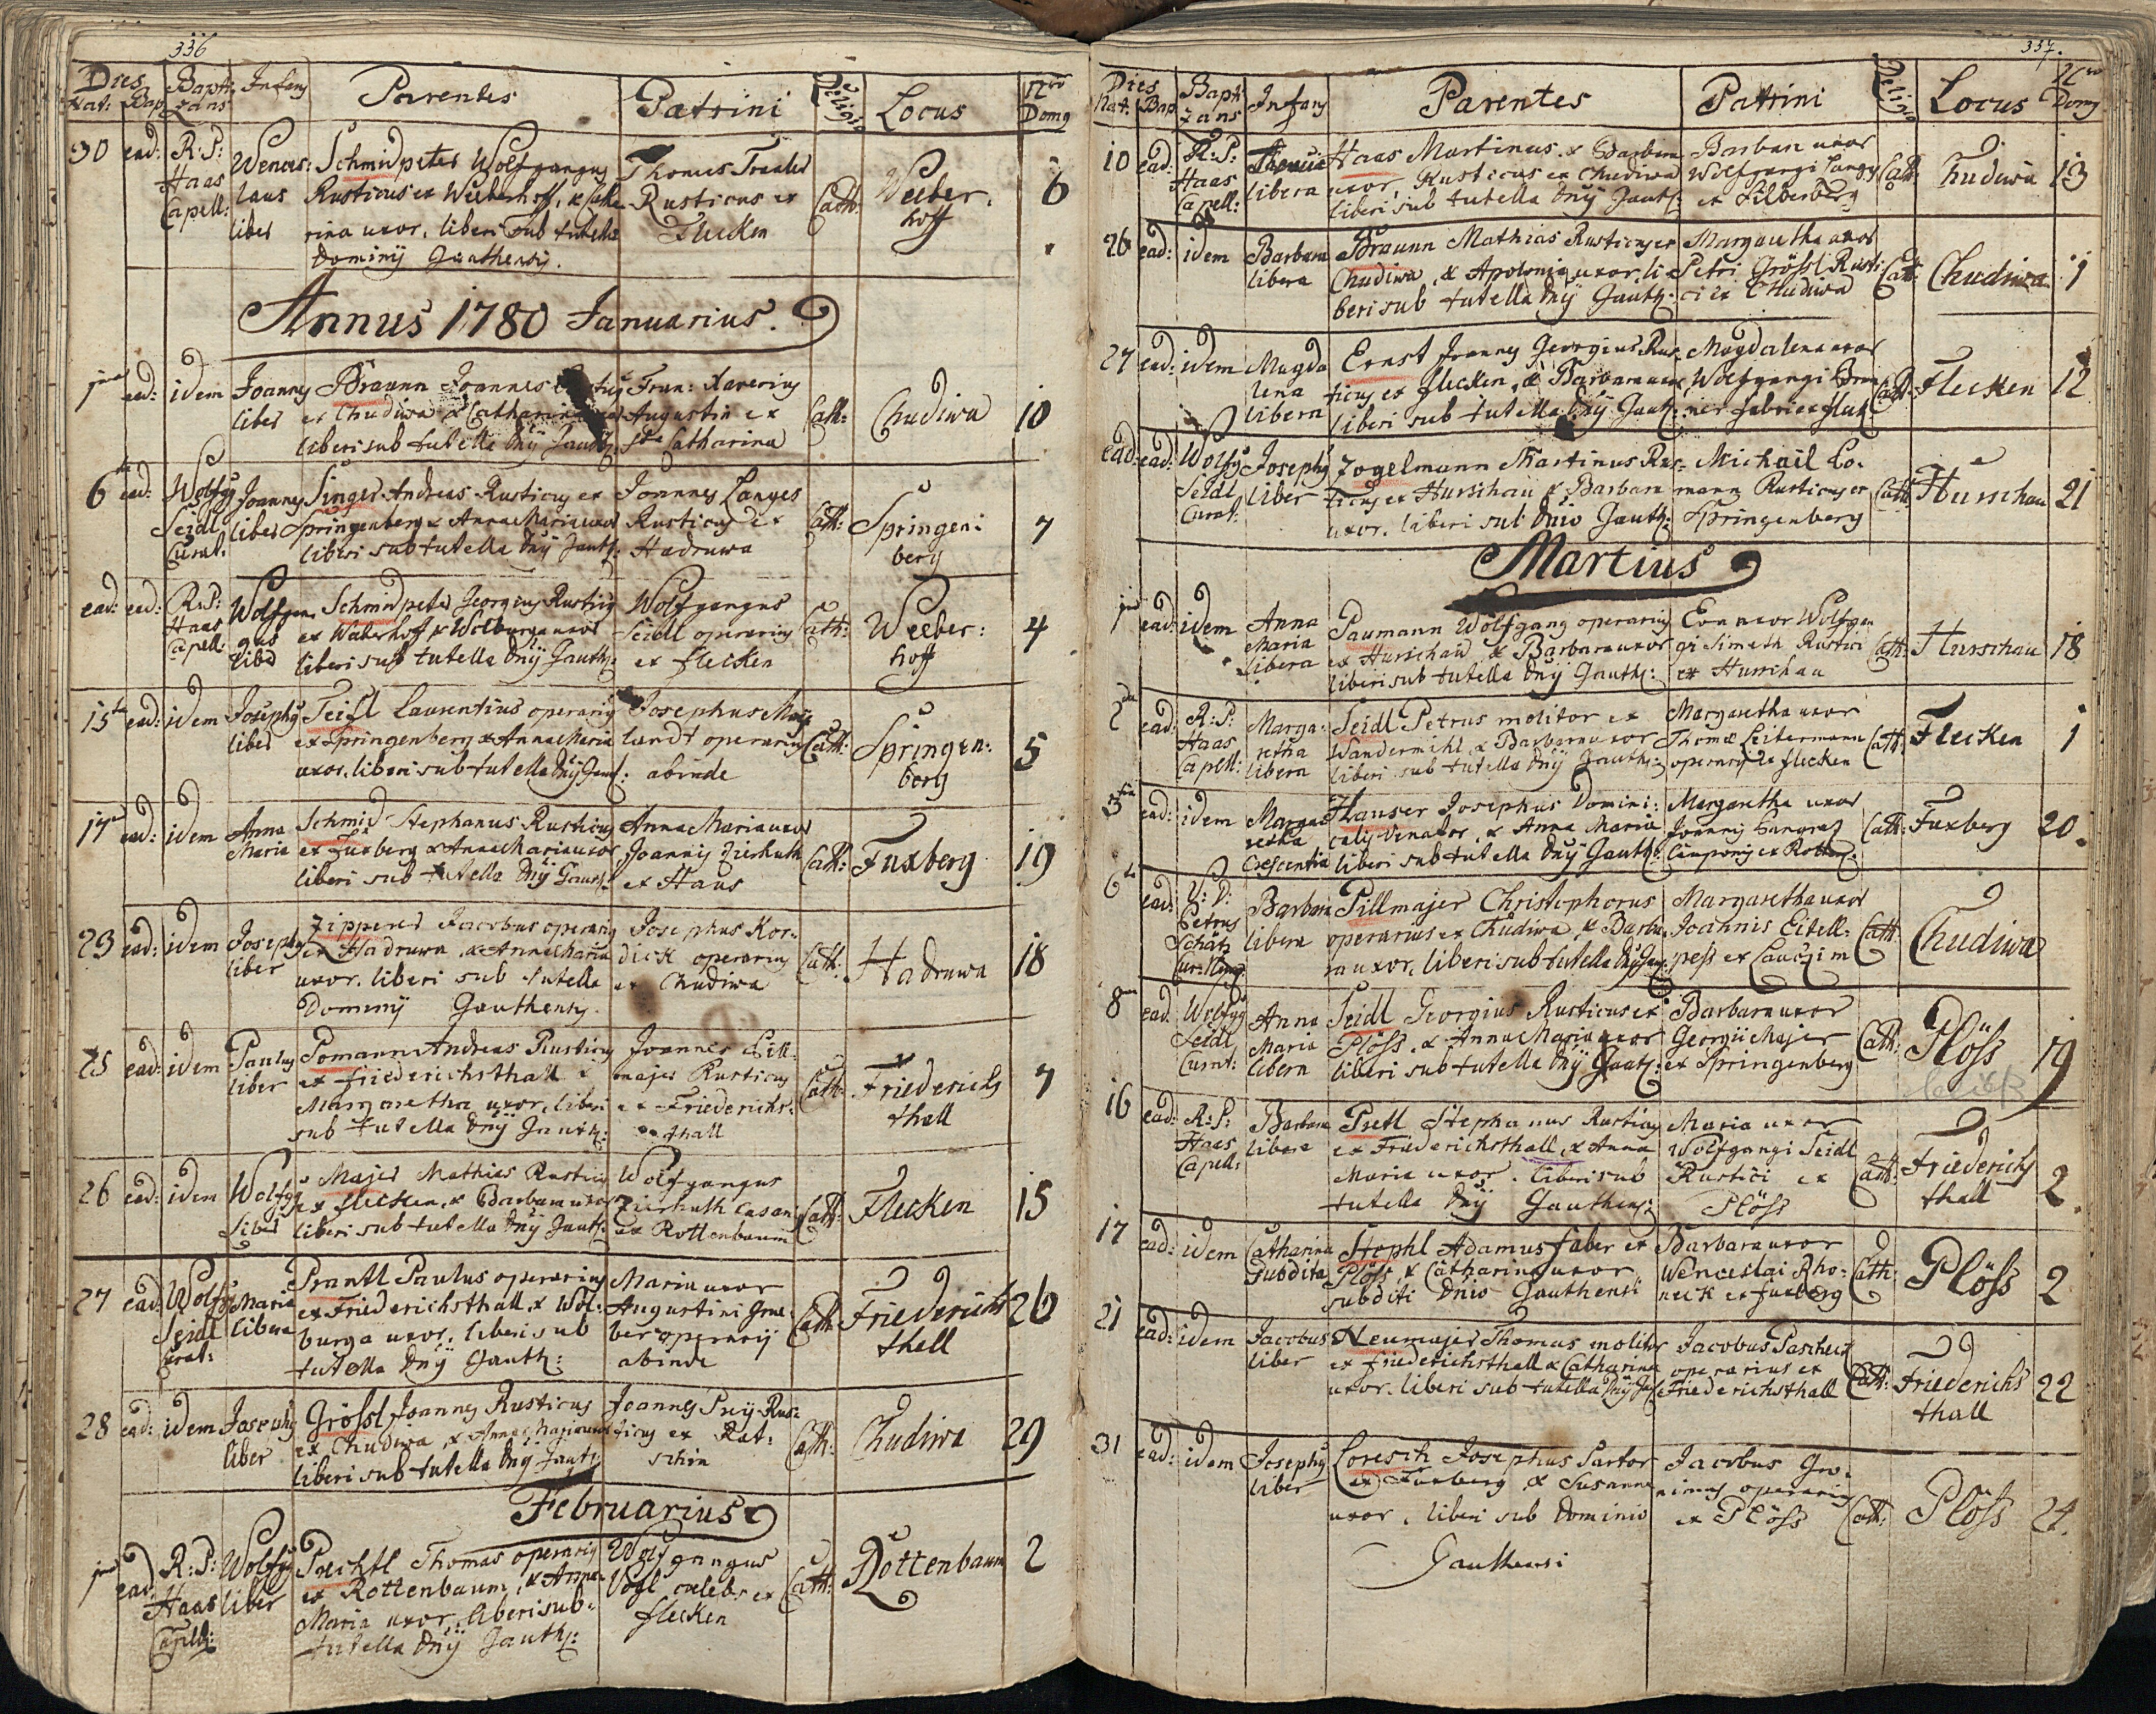 336
Dies Nat: Bap. Bapti zans Infans Parentes Patrini Religio Locus Nro Domg
30 ead: R: P: Haas Capell: Wences: laus liber
Schmidpeter Wolfgangus
Rusticus ex Weeberhoff, & Catha
rina uxor, liberi sub tutella
Dominÿ Gauthensÿ.
Thomas
Rusticus ex
Flecken
Cath: Weeber: hoff 6
Annus 1780 Januarius.
1ma ead: idem Joannes liber
Braunn Joannes
ex Chudiwa & Catharina uxor
liberi sub tutella Dnÿ Gauth:
Fran: Xaverius
Augustin ex
Sta Catharina
Cath: Chudiwa 10
6ta ead: Wolfgg Seidl Curat: Joannes liber
Singer Andreas Rusticus ex
Springenberg & Anna Maria uxor
liberi sub tutella Dnÿ Gauth:
Joannes Langes
Rusticus ex
Hadruwa
Cath: Springen: berg 7
ead: ead: R: P: Haas Capell: Wolfgan gus liber
Schmidpeter Georgius Rusticus
ex Weberhoff & Walburga uxor
liberi sub tutella Dnÿ Gauth:
Wolfgangus
Seidl operarius
ex Flecken
Cath: Weeber: hoff 4
15ta ead: idem Josephus liber
Seidl Laurentius operarius
ex Springenberg & Anna Maria
uxor, liberi sub tutella Dnÿ Gaut:
Josephus
landt operarius
abinde
Cath: Springen: berg 5
17 ead: idem Anna Maria
Schmid Stephanus Rusticus
ex Fuxberg & Anna Maria uxor
liberi sub tutella Dnÿ Gauth:
Anna Maria uxor
Joannis Zierhuth
ex Haus
Cath: Fuxberg 19
23 ead: idem Josephus liber
Zipperer Jacobus operarius
ex Hadruwa & Anna Maria
uxor. liberi sub tutella
Dominÿ Gauthensÿ.
Josephus Kor:
dick operarius
ex Chudiwa
Cath: Hadruwa 18
25 ead: idem Paulus liber
Pomann Andreas Rusticus
ex Friederichsthall &
Margaretha uxor, liberi
sub tutella Dnÿ Gauth:
Joannes Pill:
majer Rusticus
ex Friederichs:
thall
Cath: Friederichs thall 7
26 ead: idem Wolfgg liber
Majer Mathias Rusticus
ex Flecken, & Barbara uxor
liberi sub tutella Dnÿ Gauth:
Wolfgangus
Zierhuth Casarius
ex Rottenbaum
Cath: Flecken 15
27 ead: Wolfgg Seidl Curat: Maria libera
Prantl Paulus operarius
ex Friederichsthall, & Wal:
burga uxor, liberi sub
tutella Dnÿ Gauth:
Maria uxor
Augustini Gru:
ber operarÿ
abinde
Cath: Friederichs thall 26
28 ead: idem Josephus liber
Grössl Joannes Rusticus
ex Chudiwa, & Anna Maria uxor
liberi sub tutella Dnÿ Gauth:
Joannes Preÿ Rus:
ticus ex Rat:
schin
Cath: Chudiwa 29
Februarius
1ma ead: R: P: Haas Capell: Wolfgg liber
Prechtl Thomas operarius
ex Rottenbaum, & Anna
Maria uxor, liberi sub
tutella Dnÿ Gauth:
Wolfgangus
Vogl cælebs ex
Flecken
Cath: Rottenbaum 2
337.
Dies Nat: Bap Bapti zans Infans Parentes Patrini Religio Locus Nro Domg
10 ead: R: P: Haas Capell: libera
Haas Martinus & Barbara
uxor, Rusticus ex Chudiwa
liberi sub tutella Dnÿ Gauth:
Barbara uxor
Wolfgangi Langg
ex Silberberg
Cath: Chudiwa 13
26 ead: idem Barbara libera
Braunn Mathias Rusticus ex
Chudiwa, & Apolonia uxor, li
beri sub tutella Dnÿ Gauth:
Margaretha uxor
Petri Grössl Rusti:
ci ex Chudiwa
Cath: Chudiwa 1
27 ead: idem Magda lena libera
Ernst Joannes Georgius Rus
ticus ex Flecken, & Barbara uxor
liberi sub tutella Dnÿ Gauth:
Magdalena uxor
Wolfgangi
ner fabri ex Fleck
Cath: Flecken 12
ead: ead: Wolfgg Seidl Curat: Josephus liber
Zogelmann Martinus Rus
ticus ex Hurschau & Barbara
uxor. liberi sub Dnio Gauth:
Michael Lo:
mann Rusticus ex
Springenberg
Cath: Hurschau 21
Martius
1ma ead: idem Anna Maria libera
Paumann Wolfgang operarius
ex Hurschau & Barbara uxor
liberi sub tutella Dnÿ Gauth:
Eva uxor Wolfgan
gi Simeth Rustici
ex Hurschau
Cath: Hurschau 18
2da ead: R: P: Haas Capell: Marga: retha libera
Seidl Petrus molitor ex
Wandermihl & Barbara uxor
liberi sub tutella Dnÿ Gauth:
Margaretha uxor
Thomæ Leitermann
operarÿ ex Flecken
Cath: Flecken 1
3tia ead: idem Marga retha Crescentia
Hauser Josephus Domini:
calis Venator, & Anna Maria
liberi sub tutella Dnÿ Gauth:
Margaretha uxor
Joannis
Cath: Fuxberg 20.
6ta ead: V: D: Petrus Schätz Barbara libera
Pillmajer Christophorus
operarius ex Chudiwa, & Barba
ra uxor. liberi sub tutella Dnÿ Gau:
Margaretha uxor
Joannis Eitell:
pess ex Lauczim
Cath: Chudiwa
8va ead. Wolfgg Seidl Curat: Anna Maria libera
Seidl Georgius Rusticus ex
Plöss. & Anna Maria uxor
liberi sub tutella Dnÿ Gauth:
Barbara uxor
Georgii Majer
ex Springenberg
Cath: Plöss 19
16 ead: R: P: Haas Capell: Barbara libera
Pretl Stephanus Rusticus
ex Friederichsthall, & Anna
Maria uxor. liberi sub
tutella Dnÿ Gauthens:
Maria uxor
Wolfgangi Seidl
Rustici ex
Plöss
Cath: Friederichs thall 2.
17 ead: idem Catharina subdita
Stephl Adamus faber ex
Plöss & Catharina uxor
subditi Dnio Gauthensi
Barbara uxor
Wenceslai Rho:
neck ex Fuxberg
Cath: Plöss 2
21 ead: idem Jacobus liber
Neumajer Thomas molitor
ex Friederichsthall & Catharina
uxor. liberi sub tutella Dnÿ Gau:
Jacobus Pascheck
operarius ex
Friederichsthall
Cath: Friederichs thall 22
31 ead: idem Josephus liber
Loresch Josephus Sartor
ex Fuxberg & Susanna
uxor, liberi sub Dominio
Gauthensi
Jacobus Gro:
nimus operarius
ex Plöss
Cath: Plöss 24.